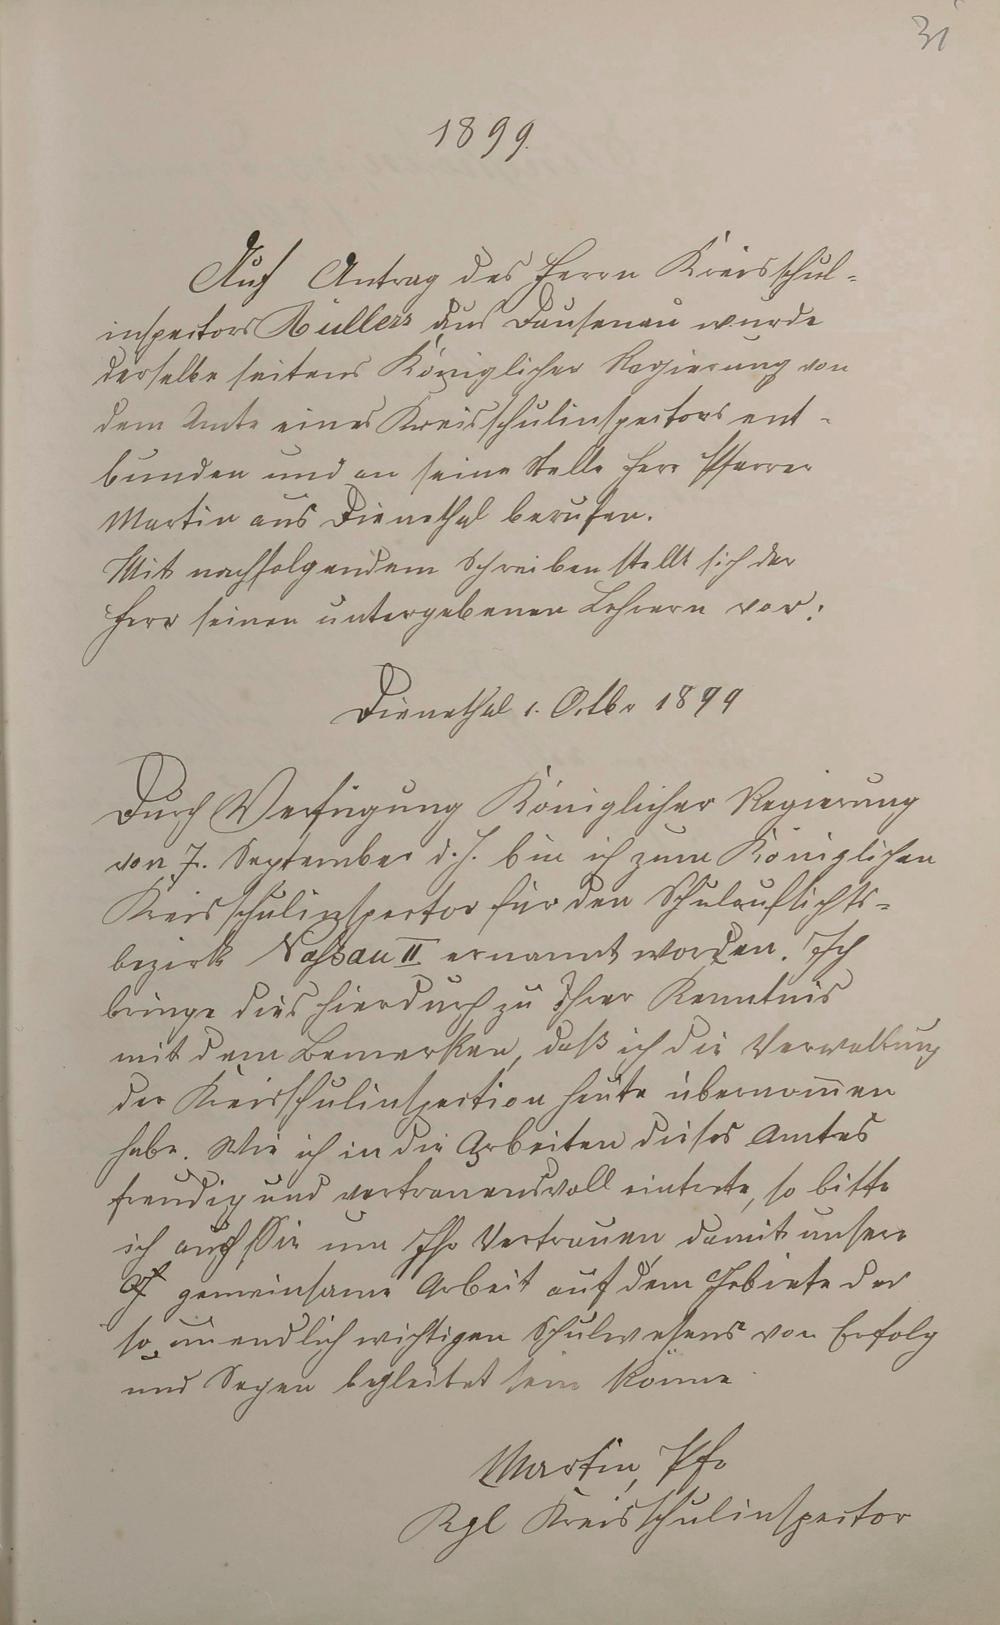 31
1899.
Auf Antrag des Herrn Kreisschul-
inspectors Müllers aus Dausenau wurde
derselbe seitens Königlicher Regierung von
dem Amte eines Kreisschulinspectors ent-
bunden und an seine Stelle Herr Pfarrer
Martin aus Dienethal berufen.
Mit nachfolgendem Schreiben stellt sich der
Herr seinen untergebenen Lehrern vor:
Dienethal 1. Oktbr 1899
Durch Verfügung Königlicher Regierung
von 7. September d. J. bin ich zum Königlichen
Kreisschulinspector für den Schulaufsichts-
bezirk Nassau II ernannt worden. Ich
bringe dies hierdurch zu Ihrer Kenntnis
mit dem Bemerken, daß ich die Verwaltung
der Kreisschulinspection heute übernommen
habe. Wie ich in die Arbeiten dieses Amtes
freudig und vertrauensvoll eintrete, so bitte
ich auch Sie um Ihr Vertrauen damit unsere
gemeinsame Arbeit auf dem Gebiete des
so unendlich wichtigen Schulwesens von Erfolg
und Segen begleitet sein könne
Martin, Pfr
Kgl Kreisschulinspector